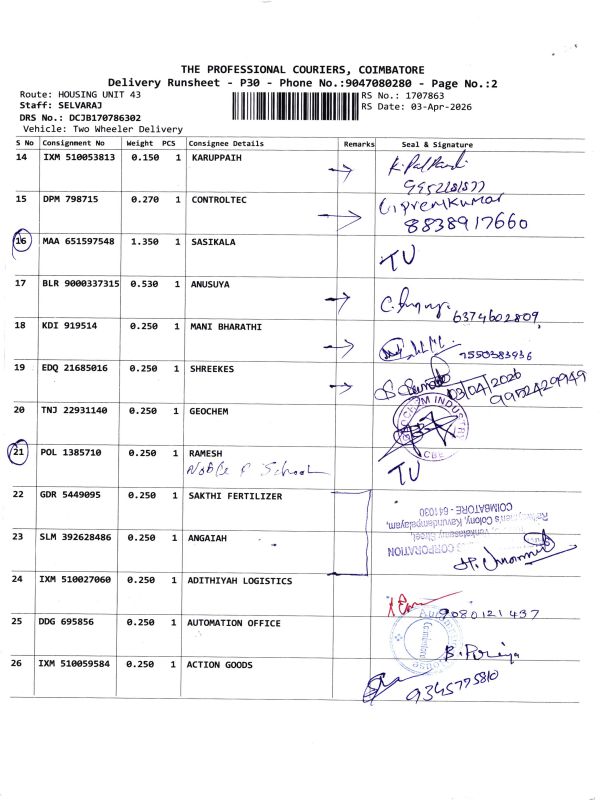 THE PROFESSIONAL COURIERS, COIMBATORE
Delivery Runsheet - P30 - Phone No.:9047080280 - Page No.:2
Route: HOUSING UNIT 43 RS No.: 1707863
Staff: SELVARAJ RS Date: 03-Apr-2026
DRS No.: DCJB170786302
Vehicle: Two Wheeler Delivery
S No Consignment No Weight PCS Consignee Details Remarks Seal & Signature
14 IXM 510053813 0.150 1 KARUPPAIH
15 DPM 798715 0.270 1 CONTROLTEC G.premkumar
8838917660
16 MAA 651597548 1.350 1 SASIKALA TU
17 BLR 9000337315 0.530 1 ANUSUYA
6374602809
18 KDI 919514 0.250 1 MANI BHARATHI
7550383936
19 EDQ 21685016 0.250 1 SHREEKES 03/04/2026
9952429949
20 TNJ 22931140 0.250 1 GEOCHEM
CBE
21 POL 1385710 0.250 1 RAMESH TU
Noble P School
22 GDR 5449095 0.250 1 SAKTHI FERTILIZER
COIMBATORE - 641030
Colony, Kavundampalayam,
CORPORATION
23 SLM 392628486 0.250 1 ANGAIAH
24 IXM 510027060 0.250 1 ADITHIYAH LOGISTICS
9080121437
25 DDG 695856 0.250 1 AUTOMATION OFFICE
Coimbatore
B. Periya
26 IXM 510059584 0.250 1 ACTION GOODS
9345775810